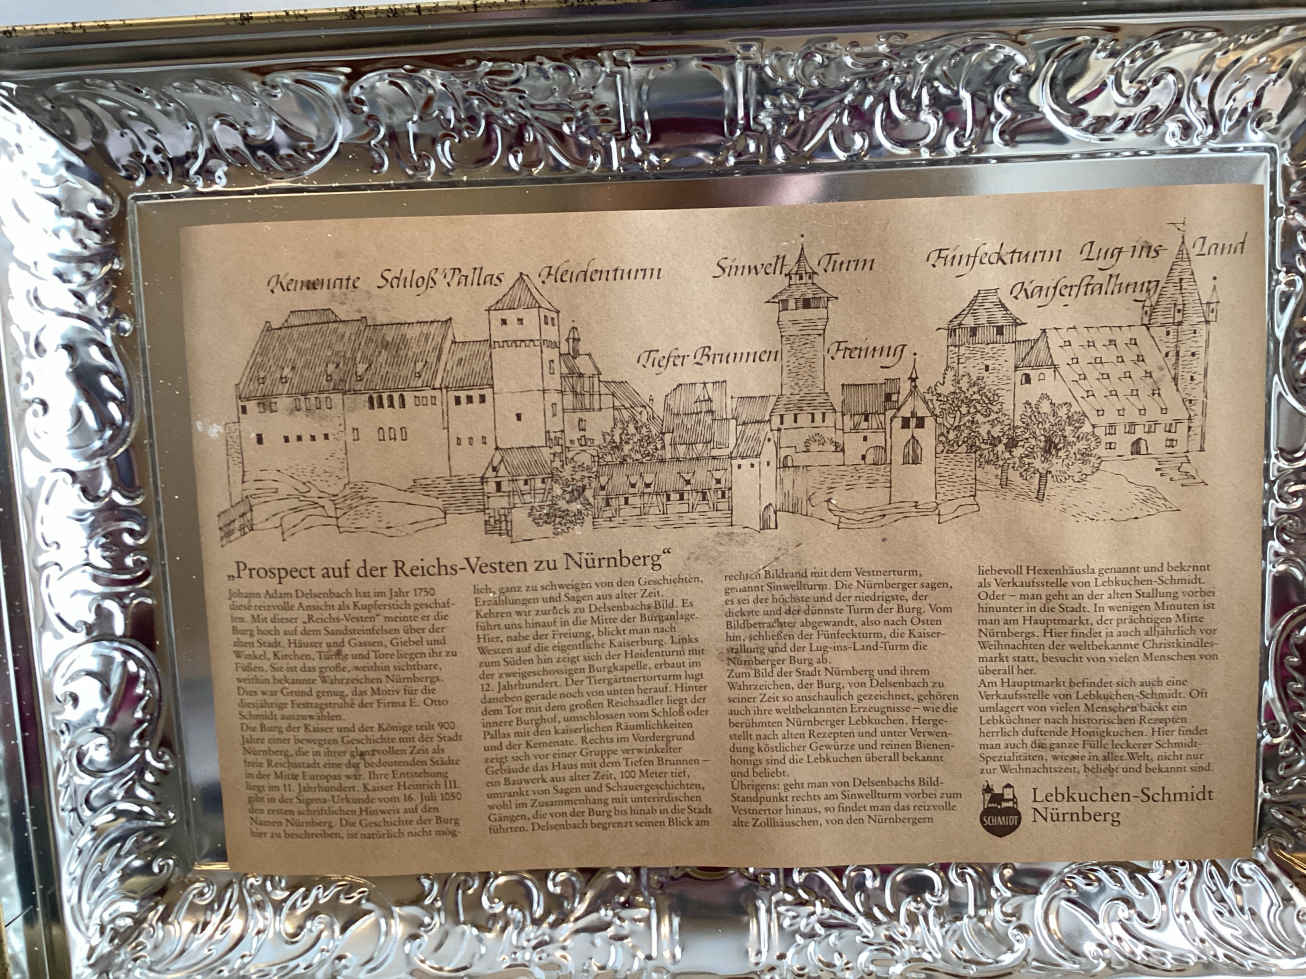 Kemenate Schloß Pallas Heidenturm
Sinwell Turm
Fünfeckturm Lug-ins-Land
Kaiserstallung
Tiefer Brunnen Freiung
„Prospect auf der Reichs-Vesten zu Nürnberg“
Johann Adam Delsenbach hat im Jahr 1750
diese reizvolle Ansicht als Kupferstich geschaf-
fen. Mit dieser „Reichs-Vesten“ meinte er die
Burg hoch auf dem Sandsteinfelsen über der
alten Stadt. Häuser und Gassen, Giebel und
Winkel, Kirchen, Türme und Tore liegen ihr zu
Füßen. Sie ist das große, weithin sichtbare,
weithin bekannte Wahrzeichen Nürnbergs.
Dies war Grund genug, das Motiv für die
diesjährige Festtagstruhe der Firma E. Otto
Schmidt auszuwählen.
Die Burg der Kaiser und der Könige teilt 900
Jahre einer bewegten Geschichte mit der Stadt
Nürnberg, die in ihrer glanzvollen Zeit als
freie Reichsstadt eine der bedeutenden Städte
in der Mitte Europas war. Ihre Entstehung
liegt im 11. Jahrhundert. Kaiser Heinrich III.
gibt in der Sigena-Urkunde vom 16. Juli 1050
den ersten schriftlichen Hinweis auf den
Namen Nürnberg. Die Geschichte der Burg
hier zu beschreiben, ist natürlich nicht mög-
lich, ganz zu schweigen von den Geschichten,
Erzählungen und Sagen aus alter Zeit.
Kehren wir zurück zu Delsenbachs Bild. Es
führt uns hinauf in die Mitte der Burganlage.
Hier, nahe der Freiung, blickt man nach
Westen auf die eigentliche Kaiserburg. Links
zum Süden hin zeigt sich der Heidenturm mit
der zweigeschossigen Burgkapelle, erbaut im
12. Jahrhundert. Der Tiergärtnertorturm lugt
daneben gerade noch von unten herauf. Hinter
dem Tor mit dem großen Reichsadler liegt der
innere Burghof, umschlossen vom Schloß oder
Pallas mit den kaiserlichen Räumlichkeiten
und der Kemenate. Rechts im Vordergrund
zeigt sich vor einer Gruppe verwinkelter
Gebäude das Haus mit dem Tiefen Brunnen –
ein Bauwerk aus alter Zeit, 100 Meter tief,
umrankt von Sagen und Schauergeschichten,
wohl im Zusammenhang mit unterirdischen
Gängen, die von der Burg bis hinab in die Stadt
führten. Delsenbach begrenzt seinen Blick am
rechten Bildrand mit dem Vestnerturm,
genannt Sinwellturm. Die Nürnberger sagen,
es sei der höchste und der niedrigste, der
dickste und der dünnste Turm der Burg. Vom
Bildbetrachter abgewandt, also nach Osten
hin, schließen der Fünfeckturm, die Kaiser-
stallung und der Lug-ins-Land-Turm die
Nürnberger Burg ab.
Zum Bild der Stadt Nürnberg und ihrem
Wahrzeichen, der Burg, von Delsenbach zu
seiner Zeit so anschaulich gezeichnet, gehören
auch ihre weltbekannten Erzeugnisse – wie die
berühmten Nürnberger Lebkuchen. Herge-
stellt nach alten Rezepten und unter Verwen-
dung köstlicher Gewürze und reinen Bienen-
honigs sind die Lebkuchen überall bekannt
und beliebt.
Übrigens: geht man von Delsenbachs Bild-
Standpunkt rechts am Sinwellturm vorbei zum
Vestnertor hinaus, so findet man das reizvolle
alte Zollhäuschen, von den Nürnbergern
liebevoll Hexenhäusla genannt und bekannt
als Verkaufsstelle von Lebkuchen-Schmidt.
Oder – man geht an der alten Stallung vorbei
hinunter in die Stadt. In wenigen Minuten ist
man am Hauptmarkt, der prächtigen Mitte
Nürnbergs. Hier findet ja auch alljährlich vor
Weihnachten der weltbekannte Christkindles-
markt statt, besucht von vielen Menschen von
überall her.
Am Hauptmarkt befindet sich auch eine
Verkaufsstelle von Lebkuchen-Schmidt. Oft
umlagert von vielen Menschen bäckt ein
Lebküchner nach historischen Rezepten
herrlich duftende Honigkuchen. Hier findet
man auch die ganze Fülle leckerer Schmidt-
Spezialitäten, wie sie in aller Welt, nicht nur
zur Weihnachtszeit, beliebt und bekannt sind.
SCHMIDT
Lebkuchen-Schmidt
Nürnberg